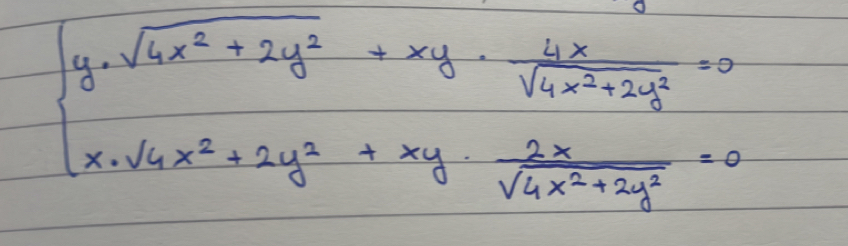 y·√(4x² + 2y²) + xy · 4x/√(4x²+2y²) = 0
x·√(4x² + 2y²) + xy · 2x/√(4x²+2y²) = 0